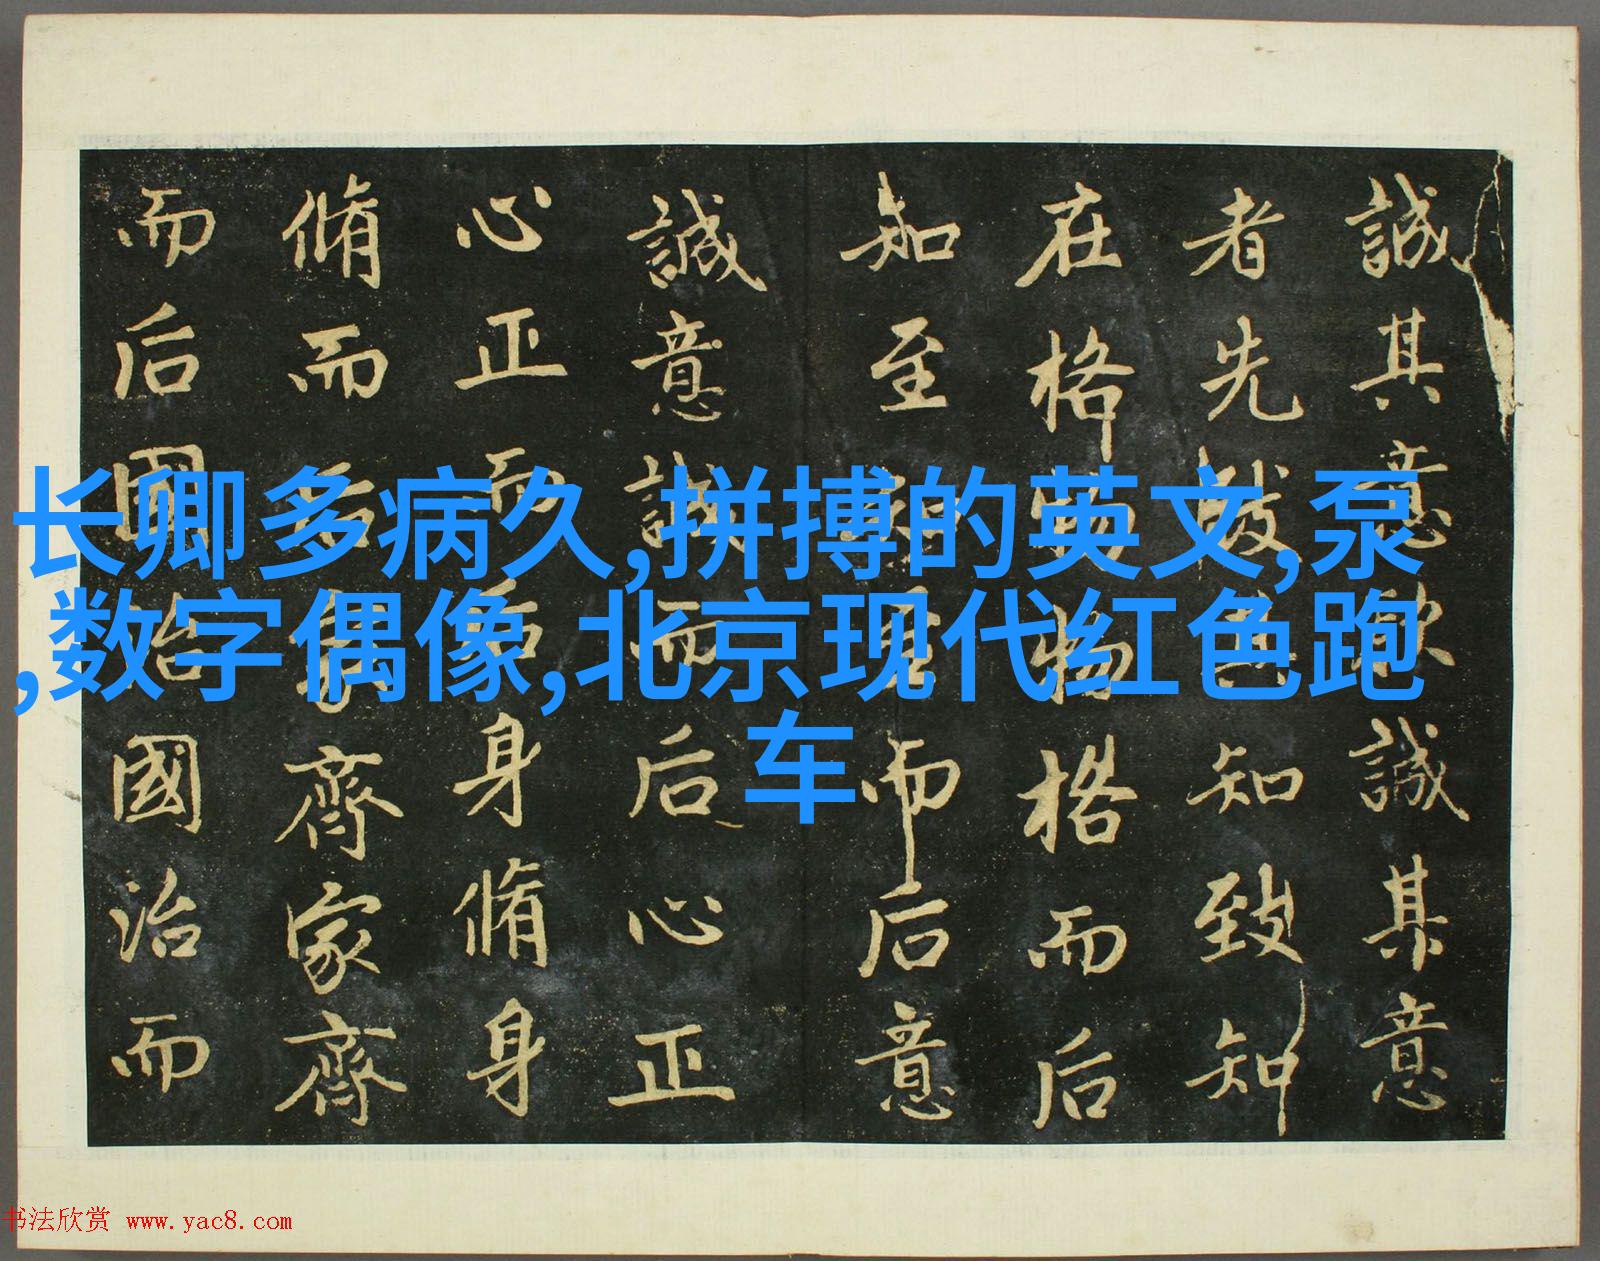 长卿多病久,拼搏的英文,泵
,数字偶像,北京现代红色跑
车
誠其意欲誠其意
者先致其知致知
在格物物格而后
知至知至而后意
誠意誠而后心正
心正而后身脩身
脩而后家齊家齊
而后國治國治而
书法欣赏 www.yac8.com